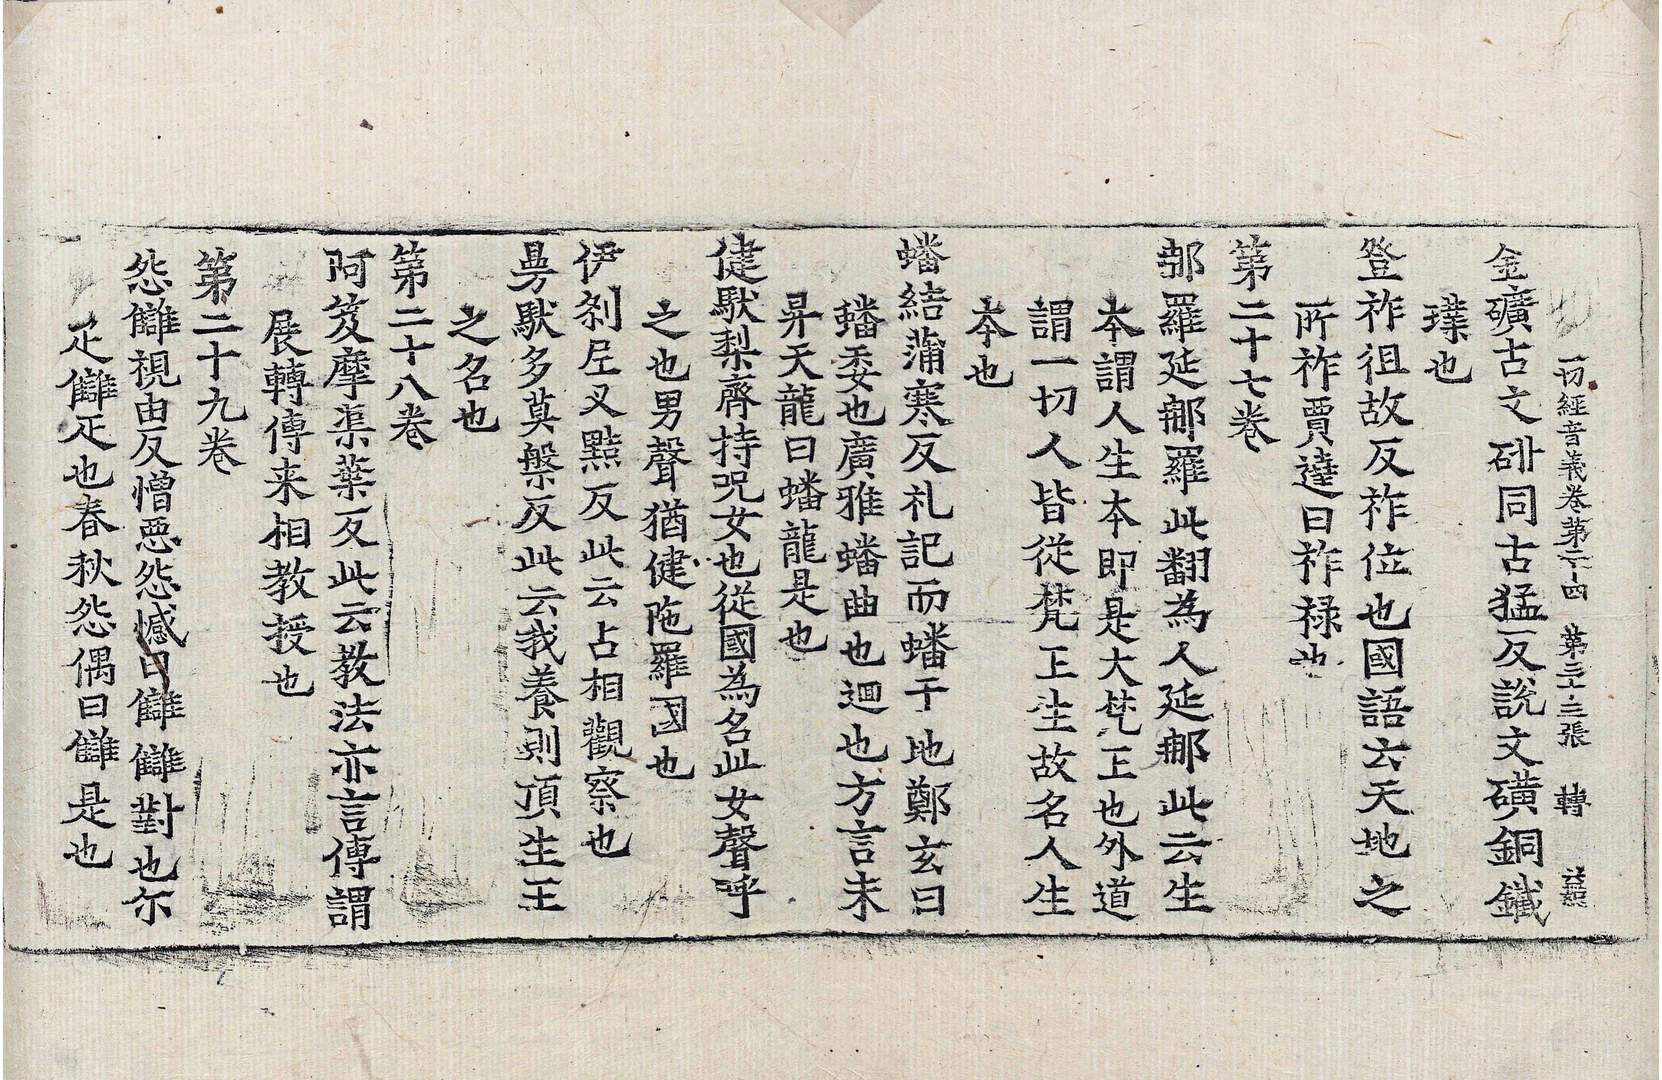 一切經音義卷第二十四 第三十三張 轉
金礦古文䂥同古猛反說文礦銅鐵
璞也
登祚徂故反祚位也國語云天地之
所祚賈逵曰祚祿也
第二十七卷
那羅延那羅此翻為人延那此云生
本謂人生本即是大梵王也外道
謂一切人皆從梵王生故名人生
本也
蟠結蒲寒反礼記而蟠于地鄭玄曰
蟠委也廣雅蟠曲也迴也方言未
昇天龍曰蟠龍是也
健馱梨齊持呪女也從國為名此女聲呼
之也男聲猶健陁羅國也
伊剎尼叉㸃反此云占相觀察也
曼馱多莫槃反此云我養則頂生王
之名也
第二十八卷
阿笈摩渠葉反此云教法亦言傳謂
展轉傳来相教授也
第二十九卷
怨讎視由反憎惡怨憾曰讎讎對也尒
疋讎疋也春秋怨偶曰讎是也